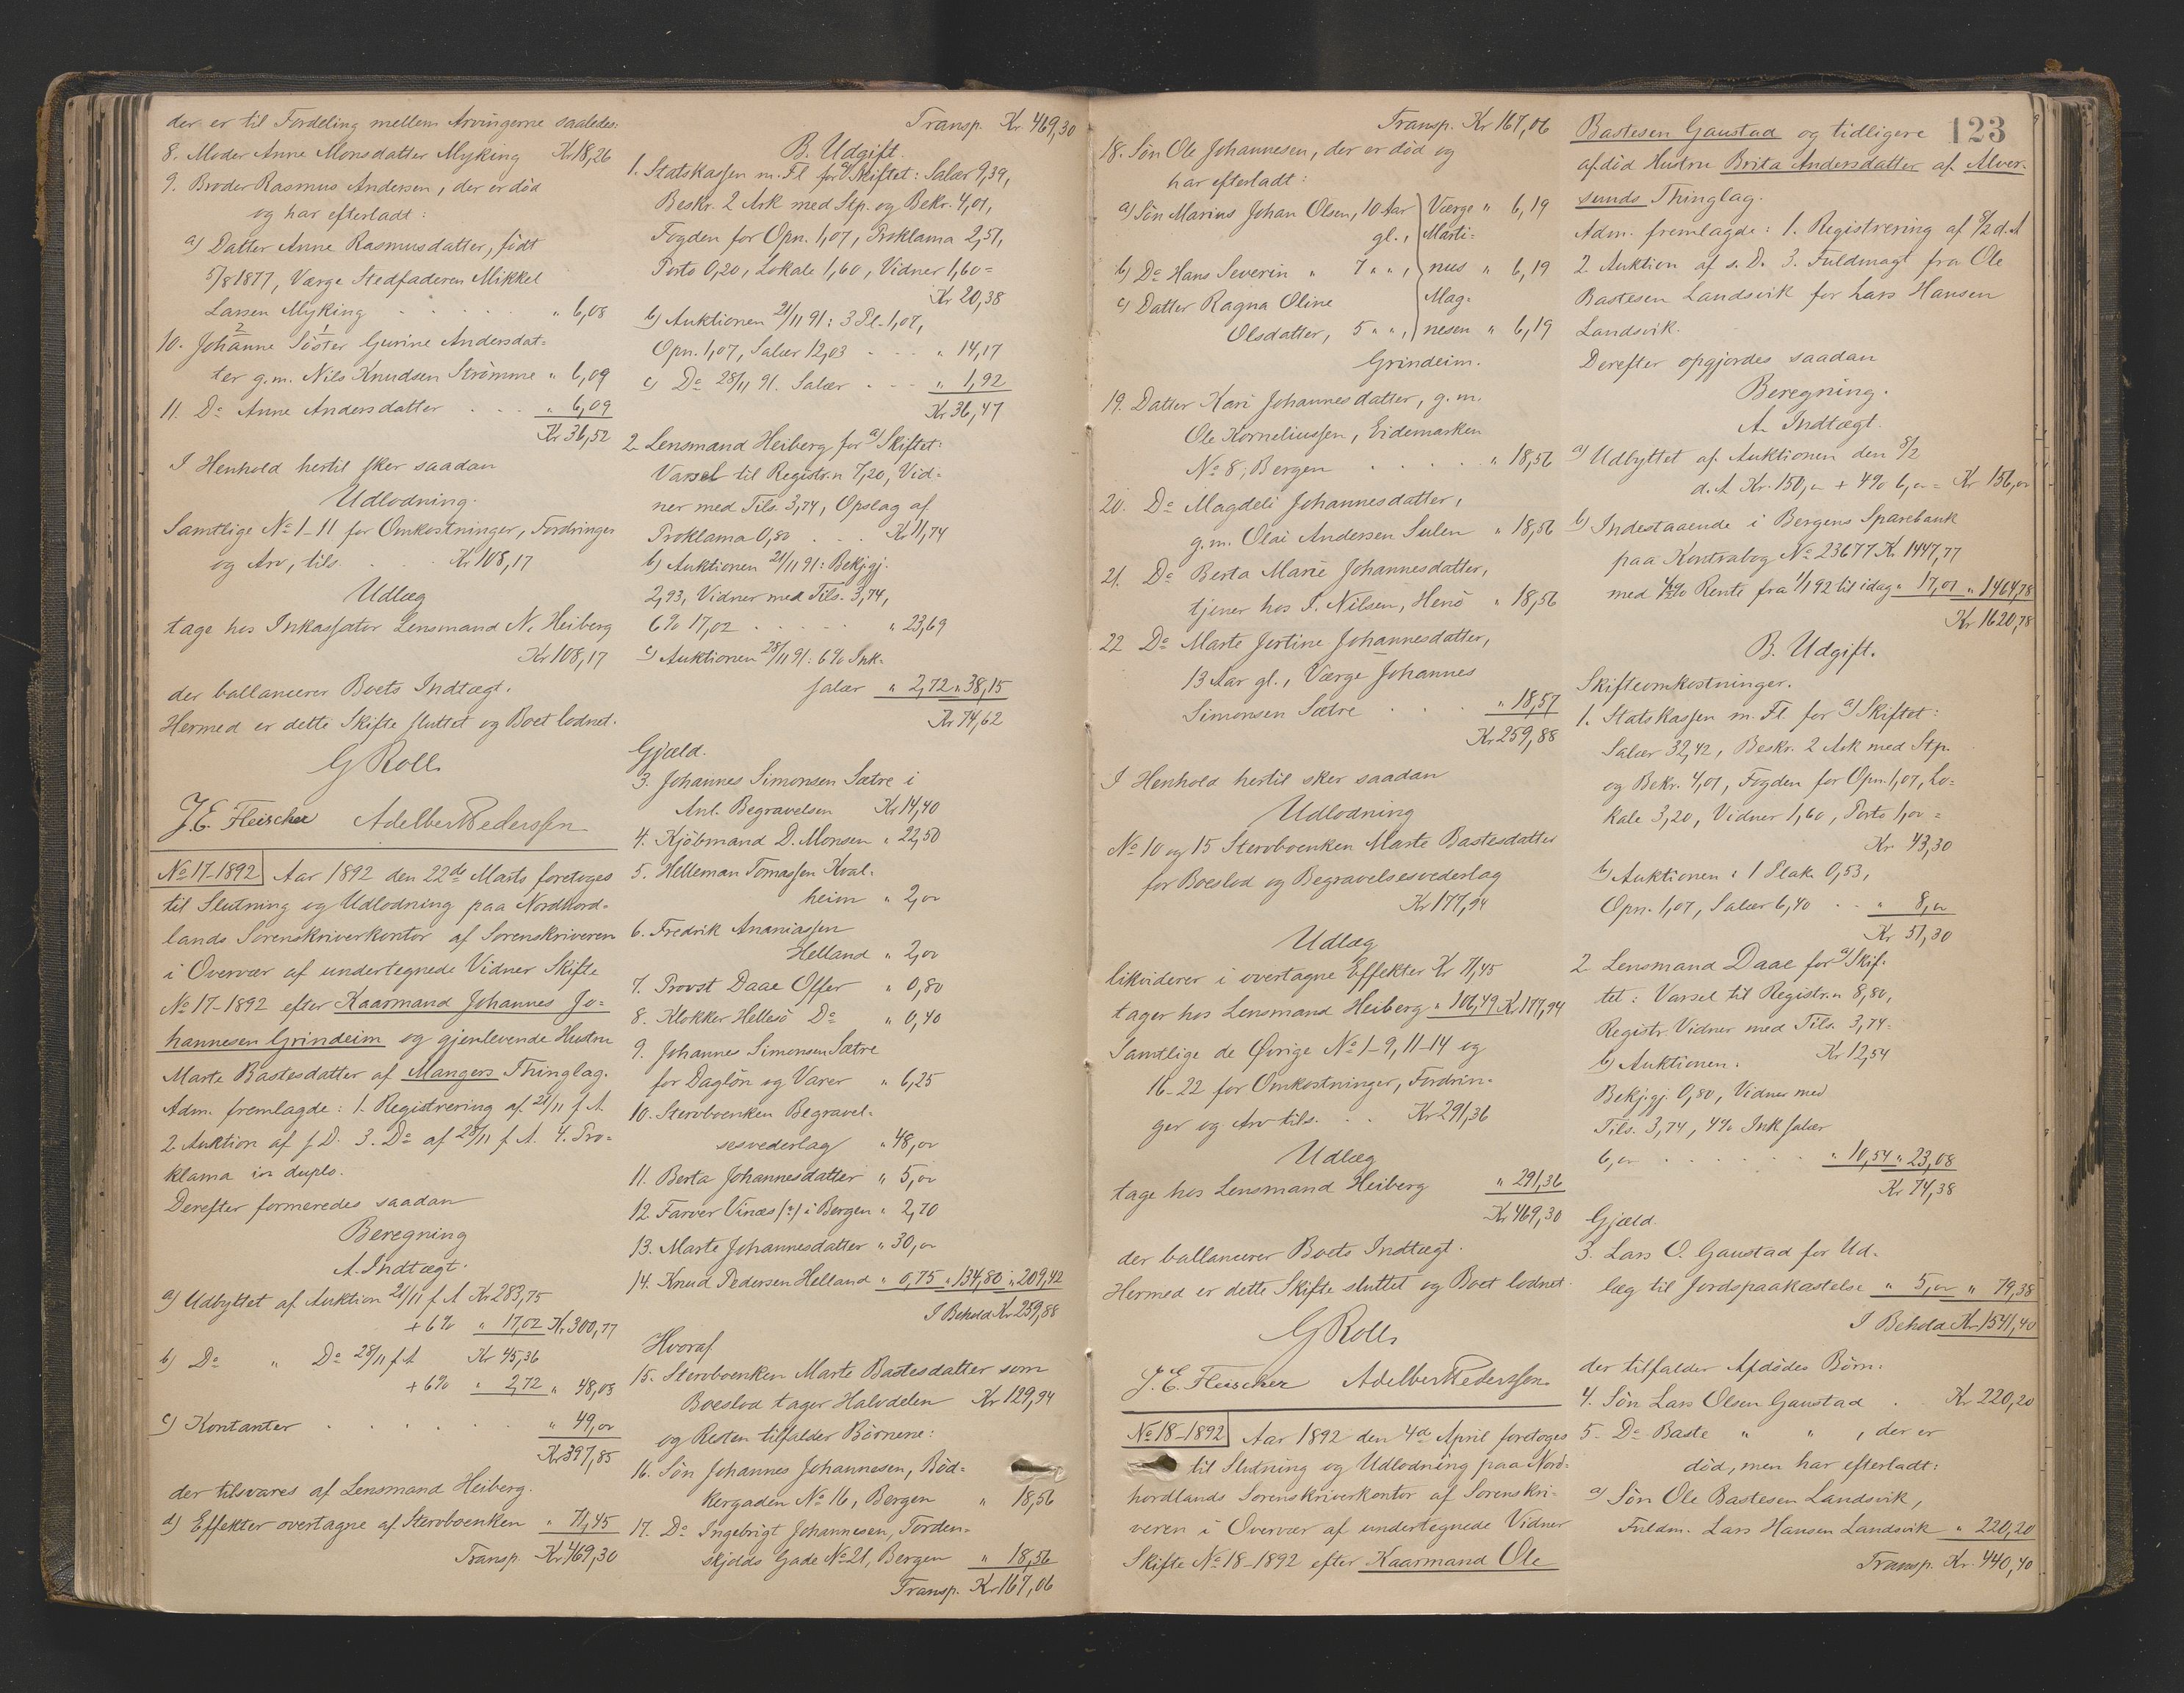 der er til Fordeling mellem Arvingerne saaledes:
8. Moder Anne Monsdatter Myking Kr 18,26
9. Broder Rasmus Andersen, der er død
og har efterladt:
a) Datter Anne Rasmusdatter, født
5/8 1877, Værge Stedfaderen Mikkel
Larsen Myking . . . . . " 6,08
10. Johanne Søster Gurine Andersdat=
ter g.m. Nils Knudsen Strømme " 6,09
11. Do Anne Andersdatter . . . " 6,09
Kr 36,52
I Henhold hertil sker saadan
Udlodning.
Samtlige No 1-11 for Omkostninger, Fordringer
og Arv, tils. . . Kr 108,17
Udlæg
tage hos Inkassator Lensmand N. Heiberg
Kr 108,17
der ballancerer Boets Indtægt.
Hermed er dette Skifte sluttet og Boet lodnet.
G Roll
J.E. Fleischer Adelbert Pederssen
No 17-1892 Aar 1892 den 22de Marts foretoges
til Slutning og Udlodning paa Nordhord=
lands Sorenskriverkontor af Sorenskriveren
i Overvær af undertegnede Vidner Skifte
No 17-1892 efter Kaarmand Johannes Jo=
hannesen Grindeim og gjenlevende Hustru
Marte Bastesdatter af Mangers Thinglag.
Adm. fremlagde: 1. Registrering af 21/11 f A
2 Auktion af s. D. 3. Do af 28/11 f. A. 4. Pro=
klama in duplo.
Derefter formeredes saadan
Beregning
A. Indtægt.
a) Udbyttet af Auktion 21/11 f A Kr 283,75
+ 6% " 17,02 Kr 300,77
b) Do " Do 28/11 f A Kr 45,36
+ 6% " 2,72 " 48,08
c) Kontanter . . . . . " 49,00
Kr 397,85
der tilsvares af Lensmand Heiberg.
d) Effekter overtagne af Stervboenken " 71,45
Transp. Kr 469,30
Transp. Kr. 469,30
B. Udgift.
1. Statskassen m. Fl. for a) Skiftet: Salær 9,39,
Beskr. 2 Ark med Stp. og Bekr. 4,01,
Fogden for Opn. 1,07, Proklama 2,51,
Porto 0,20, Lokale 1,60, Vidner 1,60 =
Kr 20,38
b) Auktionen 21/11 91: 3 Pl. 1,07,
Opn. 1,07, Salær 12,03 . . . " 14,17
c) Do 28/11 91. Salær . . . " 1,92
Kr 36,47
2 Lensmand Heiberg for a) Skiftet:
Varsel til Registr.n 7,20, Vid=
ner med Tils. 3,74, Opslag af
Proklama 0,80 . . . Kr 11,74
b) Auktionen 21/11 91: Bekj.gj.
2,93, Vidner med Tils. 3,74,
6% 17,02 . . . . . " 23,69
c) Auktionen 28/11 91: 6% Ink=
salær " 2,72 " 38,15
Kr 74,62
Gjæld.
3. Johannes Simonsen Sætre i
Anl. Begravelsen Kr 14,40
4. Kjøbmand D. Monsen " 22,50
5. Helleman Tomassen Kval=
heim " 2,00
6. Fredrik Ananiassen
Helland " 2,00
7. Provst Daae Offer " 0,80
8. Klokker Hellesø Do " 0,40
9. Johannes Simonsen Sætre
for Dagløn og Varer " 6,25
10. Stervboenken Begravel=
sesvederlag " 48,00
11. Berta Johannesdatter " 5,00
12. Farver Vinæs (?) i Bergen " 2,70
13. Marte Johannesdatter " 30,00
14. Knud Pedersen Helland " 0,75 " 134,80 " 209,42
I Behold Kr 259,88
Hvoraf
15. Stervboenken Marte Bastesdatter som
Boeslod tager Halvdelen Kr 129,94
og Resten tilfalder Børnene:
16. Søn Johannes Johannesen, Bød=
kergaden No 16, Bergen " 18,56
17. Do Ingebrigt Johannesen, Torden=
skjolds Gade No 21, Bergen " 18,56
Transp. Kr 167,06
Transp. Kr 167,06
18. Søn Ole Johannesen, der er død og
har efterladt:
a) Søn Marius Johan Olsen, 10 Aar Værge " 6,19
gl., Marti=
b) Do Hans Severin " 7 " ", nus " 6,19
c) Datter Ragna Oline Mag=
Olsdatter, 5 " ", nesen " 6,19
Grindeim.
19. Datter Kari Johannesdatter, g.m.
Ole Korneliussen, Eidemarken
No 8, Bergen . . . . . " 18,56
20. Do Magdeli Johannesdatter,
g.m. Olai Andersen Sulen " 18,56
21. Do Berta Marie Johannesdatter,
tjener hos I. Nilsen, Henø " 18,56
22 Do Marte Jertine Johannesdatter,
13 Aar gl., Værge Johannes
Simonsen Sætre . . . . " 18,57
Kr 259,88
I Henhold hertil sker saadan
Udlodning
No 10 og 15 Stervboenken Marte Bastesdatter
for Boeslod og Begravelsesvederlag
Kr 177,94
Udlæg
likviderer i overtagne Effekter Kr 71,45
tager hos Lensmand Heiberg " 106,49 Kr 177,94
Samtlige de Øvrige No 1-9, 11-14 og
16-22 for Omkostninger, Fordrin=
ger og Arv tils. . . Kr 291,36
Udlæg
tage hos Lensmand Heiberg " 291,36
Kr 469,30
der ballancerer Boets Indtægt.
Hermed er dette Skifte sluttet og Boet lodnet.
G Roll
J.E. Fleischer Adelbert Pederssen
No 18-1892 Aar 1892 den 4de April foretoges
til Slutning og Udlodning paa Nord=
hordlands Sorenskriverkontor af Sorenskri=
veren i Overvær af undertegnede Vidner
Skifte No 18-1892 efter Kaarmand Ole
123
Bastesen Gaustad og tidligere
afdød Hustru Brita Andersdatter af Alver=
sunds Thinglag.
Adm. fremlagde: 1. Registrering af 8/2 d.A
2 Auktion af s. D. 3. Fuldmagt fra Ole
Bastesen Landsvik for Lars Hansen
Landsvik.
Derefter opgjordes saadan
Beregning.
A. Indtægt.
a) Udbyttet af Auktionen den 8/2
d. A Kr. 150,00 + 4% 6,00 = Kr 156,00
b) Indestaaende i Bergens Sparebank
paa Kontrabog No 23677 Kr. 1447,77
med 4 1/2% Rente fra 1/1 92 til idag " 17,01 " 1464,78
Kr 1620,78
B. Udgift.
Skifteomkostninger.
1. Statskassen m. Fl. for a) Skiftet:
Salær 32,42, Beskr. 2 Ark med Stp.
og Bekr. 4,01, Fogden for Opn. 1,07, Lo=
kale 3,20, Vidner 1,60, Porto 1,00 =
Kr 43,30
b) Auktionen: 1 Plak. 0,53,
Opn. 1,07, Salær 6,40 . . " 8,00
Kr 51,30
2 Lensmand Daae for a) Skif=
tet: Varsel til Registr.n 8,80,
Registr. Vidner med Tils. 3,74 =
b) Auktionen: Kr 12,54
Bekj.gj. 0,80, Vidner med
Tils. 3,74, 4% Ink.salær
6,00 . . . . . . " 10,54 " 23,08
Kr 74,38
Gjæld.
3. Lars O. Gaustad for Ud=
læg til Jordspaakastelse " 5,00 " 79,38
I Behold Kr 1541,40
der tilfalder Afdødes Børn:
4. Søn Lars Olsen Gaustad . . Kr 220,20
5. Do Baste " " , der er
død, men har efterladt:
a) Søn Ole Bastesen Landsvik,
Fuldm. Lars Hansen Landsvik " 220,20
Transp. Kr. 440,40